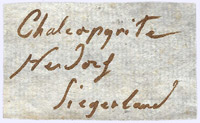 Chalcopyrite
Herdorf
Siegerland